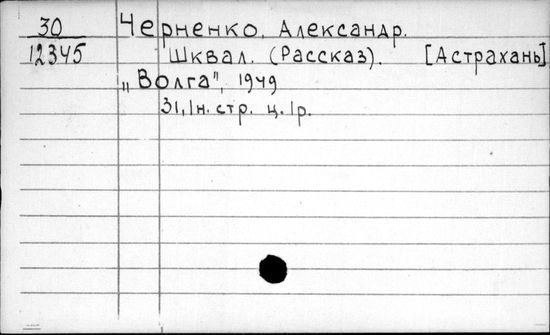 30 Черненко, Александр.
12345 Шквал. (Рассказ). [Астрахань]
„Волга", 1949
31, 1н. стр. ц. 1р.